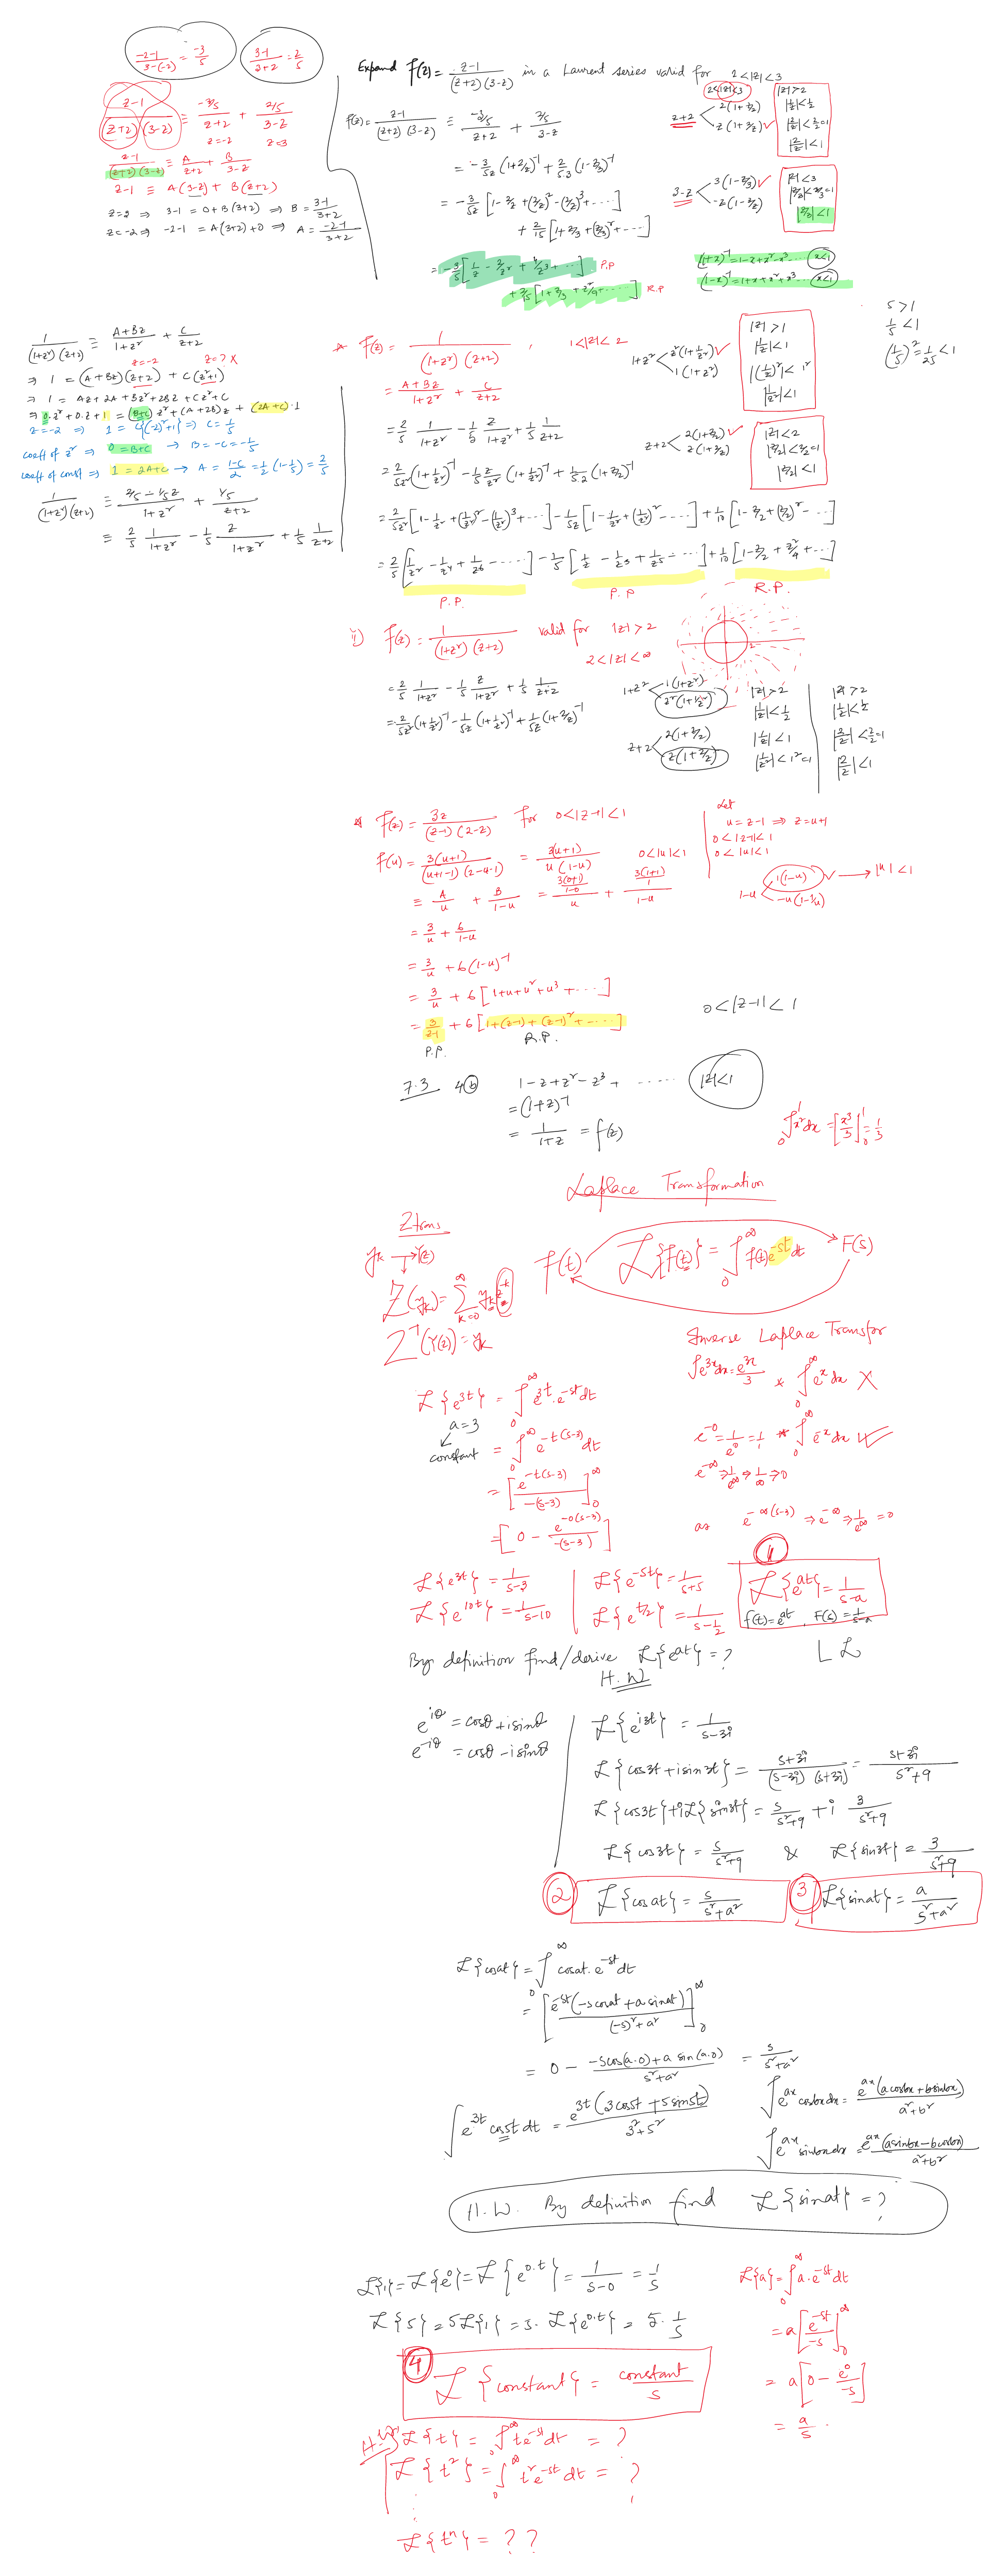 (-2-1)/(3-(-2)) = -3/5
(3-1)/(2+2) = 2/5
(z-1)/((z+2)(3-z)) ≡ (-3/5)/(z+2) + (2/5)/(3-z)
z=-2 z=3
(z-1)/((z+2)(3-z)) ≡ A/(z+2) + B/(3-z)
z-1 ≡ A(3-z) + B(z+2)
z=3 ⇒ 3-1 = 0+B(3+2) ⇒ B = (3-1)/(3+2)
z=-2 ⇒ -2-1 = A(3+2)+0 ⇒ A = (-2-1)/(3+2)
Expand f(z) = (z-1)/((z+2)(3-z)) in a Laurent series valid for 2<|z|<3
f(z) = (z-1)/((z+2)(3-z)) ≡ (-3/5)/(z+2) + (2/5)/(3-z)
= -3/5z (1+2/z)⁻¹ + 2/5.3 (1-z/3)⁻¹
= -3/5z [1-2/z+(2/z)²-(2/z)³+....]
+ 2/15 [1+z/3+(z/3)²+....]
= -3/5 [1/z - 2/z² + 4/z³ + ....] P.P
+ 2/15 [1+z/3+z²/9+.....] R.P
2<|z|<3
z+2 < 2(1+z/2)
z(1+2/z) ✓
|z|>2
|1/z|<1/2
|2/z|<2/2=1
|2/z|<1
3-z < 3(1-z/3) ✓
-z(1-3/z)
|z|<3
|z/3|<3/3=1
|z/3|<1
(1+x)⁻¹=1-x+x²-x³.... x<1
(1-x)⁻¹=1+x+x²+x³... x<1
5>1
1/5<1
(1/5)²=1/25<1
1/((1+z²)(z+2)) ≡ (A+Bz)/(1+z²) + C/(z+2)
z=-2 z=? ×
⇒ 1 = (A+Bz)(z+2) + C(z²+1)
⇒ 1 = Az+2A+Bz²+2Bz+Cz²+C
⇒ 0.z²+0.z+1 = (B+C)z²+(A+2B)z+(2A+C).1
z=-2 ⇒ 1 = C{(-2)²+1} ⇒ C=1/5
coeff of z² ⇒ 0=B+C → B=-C=-1/5
coeff of const ⇒ 1=2A+C → A=(1-C)/2=1/2(1-1/5)=2/5
1/((1+z²)(z+2)) ≡ (2/5-1/5z)/(1+z²) + (1/5)/(z+2)
= 2/5 1/(1+z²) - 1/5 z/(1+z²) + 1/5 1/(z+2)
* f(z) = 1/((1+z²)(z+2)), 1<|z|<2
= (A+Bz)/(1+z²) + C/(z+2)
= 2/5 1/(1+z²) - 1/5 z/(1+z²) + 1/5 1/(z+2)
= 2/5z² (1+1/z²)⁻¹ - 1/5 z/z² (1+1/z²)⁻¹ + 1/5.2 (1+z/2)⁻¹
= 2/5z² [1-1/z²+(1/z²)²-(1/z²)³+...] - 1/5z [1-1/z²+(1/z²)²-....] + 1/10 [1-z/2+(z/2)²-...]
= 2/5 [1/z²-1/z⁴+1/z⁶-....] - 1/5 [1/z-1/z³+1/z⁵-...] + 1/10 [1-z/2+z²/4+...]
P.P. P.P R.P.
1+z² < z²(1+1/z²) ✓
1(1+z²)
|z|>1
|1/z|<1
|(1/z)²|<1²
|1/z²|<1
z+2 < 2(1+z/2) ✓
z(1+2/z)
|z|<2
|z/2|<2/2=1
|z/2|<1
ii) f(z) = 1/((1+z²)(z+2)) valid for |z|>2
2<|z|<∞
= 2/5 1/(1+z²) - 1/5 z/(1+z²) + 1/5 1/(z+2)
= 2/5z² (1+1/z²)⁻¹ - 1/5z (1+1/z²)⁻¹ + 1/5z (1+2/z)⁻¹
1+z² < 1(1+z²)
z²(1+1/z²)
z+2 < 2(1+z/2)
z(1+2/z)
|z|>2
|1/z|<1/2
|1/z|<1
|1/z²|<1²=1
|z|>2
|1/z|<1/2
|2/z|<2/2=1
|2/z|<1
f(z) = 3z/((z-1)(2-z)) for 0<|z-1|<1
f(u) = 3(u+1)/((u+1-1)(2-u-1)) = 3(u+1)/(u(1-u)) 0<|u|<1
≡ A/u + B/(1-u) = (3(0+1)/(1-0))/u + (3(1+1)/1)/(1-u)
= 3/u + 6/(1-u)
= 3/u + 6(1-u)⁻¹
= 3/u + 6[1+u+u²+u³+....]
= 3/(z-1) + 6[1+(z-1)+(z-1)²+.....]
P.P. R.P.
Let
u=z-1 ⇒ z=u+1
0<|z-1|<1
0<|u|<1
1-u < 1(1-u) ✓ → |u|<1
-u(1-1/u)
0<|z-1|<1
7.3 4(b) 1-z+z²-z³+ ..... |z|<1
= (1+z)⁻¹
= 1/(1+z) = f(z)
∫₀¹x²dx=[x³/3]₀¹=1/3
Laplace Transformation
Z trans
yₖ → Y(z)
Z(yₖ)=∑ₖ₌₀^∞ yₖz⁻ᵏ
Z⁻¹(Y(z))=yₖ
f(t) ℒ{f(t)} = ∫₀^∞ f(t)e⁻ˢᵗdt F(s)
Inverse Laplace Transfor
ℒ{e³ᵗ} = ∫₀^∞ e³ᵗ.e⁻ˢᵗdt
a=3
constant
= ∫₀^∞ e^{-t(s-3)}dt
= [e^{-t(s-3)}/-(s-3)]₀^∞
= [0 - e^{-0(s-3)}/-(s-3)]
∫e³ˣdx=e³ˣ/3 * ∫₀^∞eˣdx ×
e⁻⁰=1/e⁰=1/1 * ∫₀^∞e⁻ˣdx ✓
e^{-∞}⇒1/e^∞⇒1/∞⇒0
as e^{-∞(s-3)}⇒e^{-∞}⇒1/e^∞=0
ℒ{e³ᵗ} = 1/(s-3)
ℒ{e¹⁰ᵗ} = 1/(s-10)
ℒ{e⁻⁵ᵗ} = 1/(s+5)
ℒ{e^{t/2}} = 1/(s-1/2)
1
ℒ{eᵃᵗ} = 1/(s-a)
f(t)=eᵃᵗ, F(s)=1/(s-a)
By definition find/derive ℒ{eᵃᵗ} = ? L ℒ
H.W
e^{iθ} = cosθ+isinθ
e^{-iθ} = cosθ-isinθ
ℒ{e^{i3t}} = 1/(s-3i)
ℒ{cos3t+isin3t} = (s+3i)/((s-3i)(s+3i)) = (s+3i)/(s²+9)
ℒ{cos3t}+iℒ{sin3t} = s/(s²+9) + i 3/(s²+9)
ℒ{cos3t} = s/(s²+9) & ℒ{sin3t} = 3/(s²+9)
2 ℒ{cosat} = s/(s²+a²)
3 ℒ{sinat} = a/(s²+a²)
ℒ{cosat} = ∫₀^∞ cosat.e⁻ˢᵗdt
= [e⁻ˢᵗ(-scosat+asinat)/((-s)²+a²)]₀^∞
= 0 - (-scos(a.0)+a sin(a.0))/(s²+a²) = s/(s²+a²)
∫e³ᵗcos5t dt = e³ᵗ(3cos5t+5sin5t)/(3²+5²)
∫eᵃˣcosbxdx = eᵃˣ(acosbx+bsinbx)/(a²+b²)
∫eᵃˣsinbxdx = eᵃˣ(asinbx-bcosbx)/(a²+b²)
H.W. By definition find ℒ{sinat} = ?
ℒ{1}=ℒ{e⁰}=ℒ{e^{0.t}} = 1/(s-0) = 1/s
ℒ{5} = 5ℒ{1} = 5.ℒ{e^{0.t}} = 5.1/s
4
ℒ{constant} = constant/s
ℒ{a} = ∫₀^∞ a.e⁻ˢᵗdt
= a[e⁻ˢᵗ/-s]₀^∞
= a[0 - e⁰/-s]
= a/s.
H.W ℒ{t} = ∫₀^∞ te⁻ˢᵗdt = ?
ℒ{t²} = ∫₀^∞ t²e⁻ˢᵗdt = ?
ℒ{tⁿ} = ??